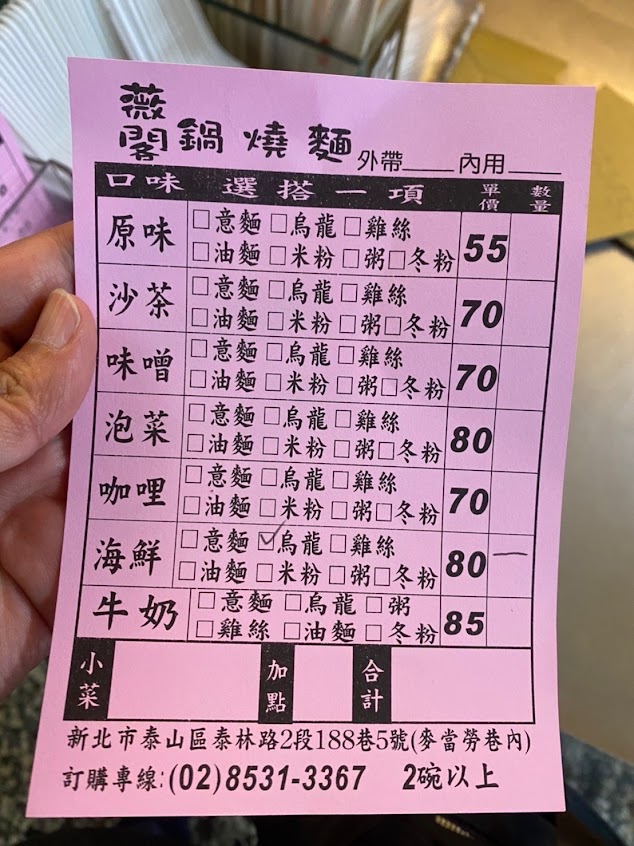 薇閣鍋燒麵 外帶____ 內用____
口味 選搭一項 單價 數量
原味 □意麵 □烏龍 □雞絲 55
□油麵 □米粉 □粥 □冬粉
沙茶 □意麵 □烏龍 □雞絲 70
□油麵 □米粉 □粥 □冬粉
味噌 □意麵 □烏龍 □雞絲 70
□油麵 □米粉 □粥 □冬粉
泡菜 □意麵 □烏龍 □雞絲 80
□油麵 □米粉 □粥 □冬粉
咖哩 □意麵 □烏龍 □雞絲 70
□油麵 □米粉 □粥 □冬粉
海鮮 □意麵 ☑烏龍 □雞絲 80 一
□油麵 □米粉 □粥 □冬粉
牛奶 □意麵 □烏龍 □粥 85
□雞絲 □油麵 □冬粉
小菜 加點 合計
新北市泰山區泰林路2段188巷5號(麥當勞巷內)
訂購專線:(02)8531-3367 2碗以上